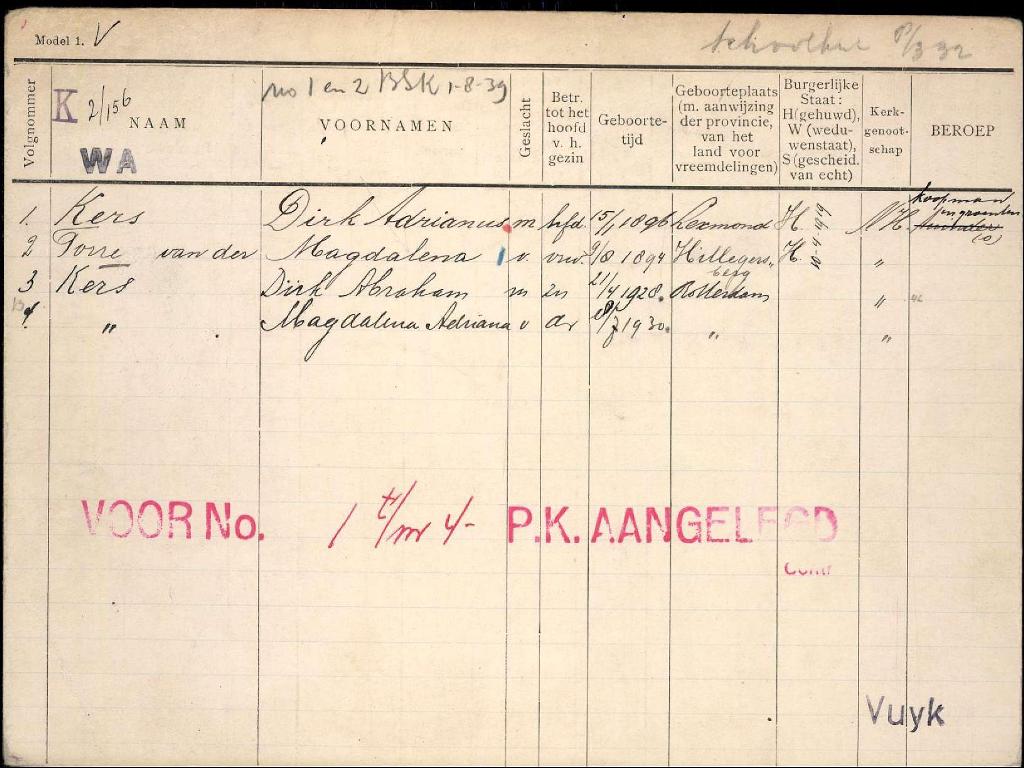 Model 1. V
8/3 32
K 2/156
no 1 en 2 BSK 1-8-39
Volgnommer
NAAM
WA
VOORNAMEN
Geslacht
Betr. tot het hoofd v. h. gezin
Geboorte-tijd
Geboorteplaats (m. aanwijzing der provincie, van het land voor vreemdelingen)
Burgerlijke Staat: H (gehuwd), W (wedu-wenstaat), S (gescheid. van echt)
Kerk-genoot-schap
BEROEP
koopman
1. Kers Dirk Adrianus m hfd 15/1 1896 Lexmond H. NH.
2 Torre van der Magdalena v. vrw. 9/8 1894 Hillegersberg H. "
3 Kers Dirk Abraham m zn 21/4 1928. Rotterdam "
4 " Magdalena Adriana v dr 8/7 1930. " "
VOOR No. 1 t/m 4- P.K. AANGELEGD
Vuyk